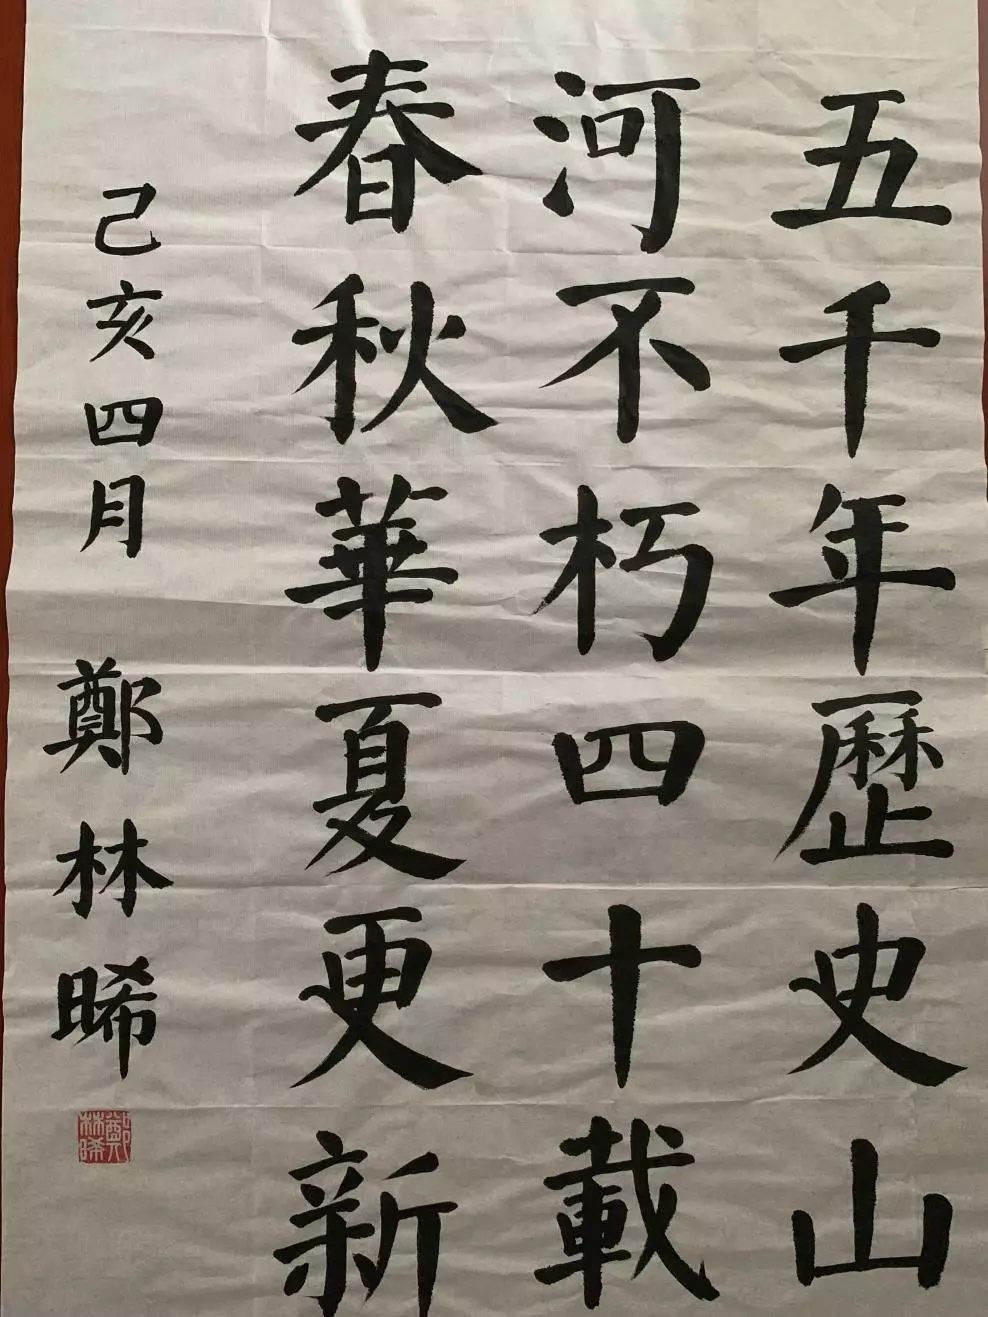 五千年歷史山
河不朽四十載
春秋華夏更新
己亥四月 鄭林晞
鄭林晞